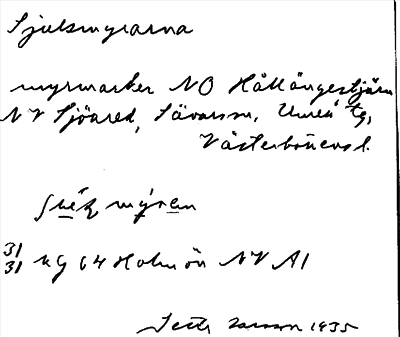 Sjulsmyrarna
myrmarker NO Hållängestjärn
NV Sjöared, Sävarsn, Umeå tg,
Västerbottensl.
myren
31
31 kg 64 Holmön NV A1
1935